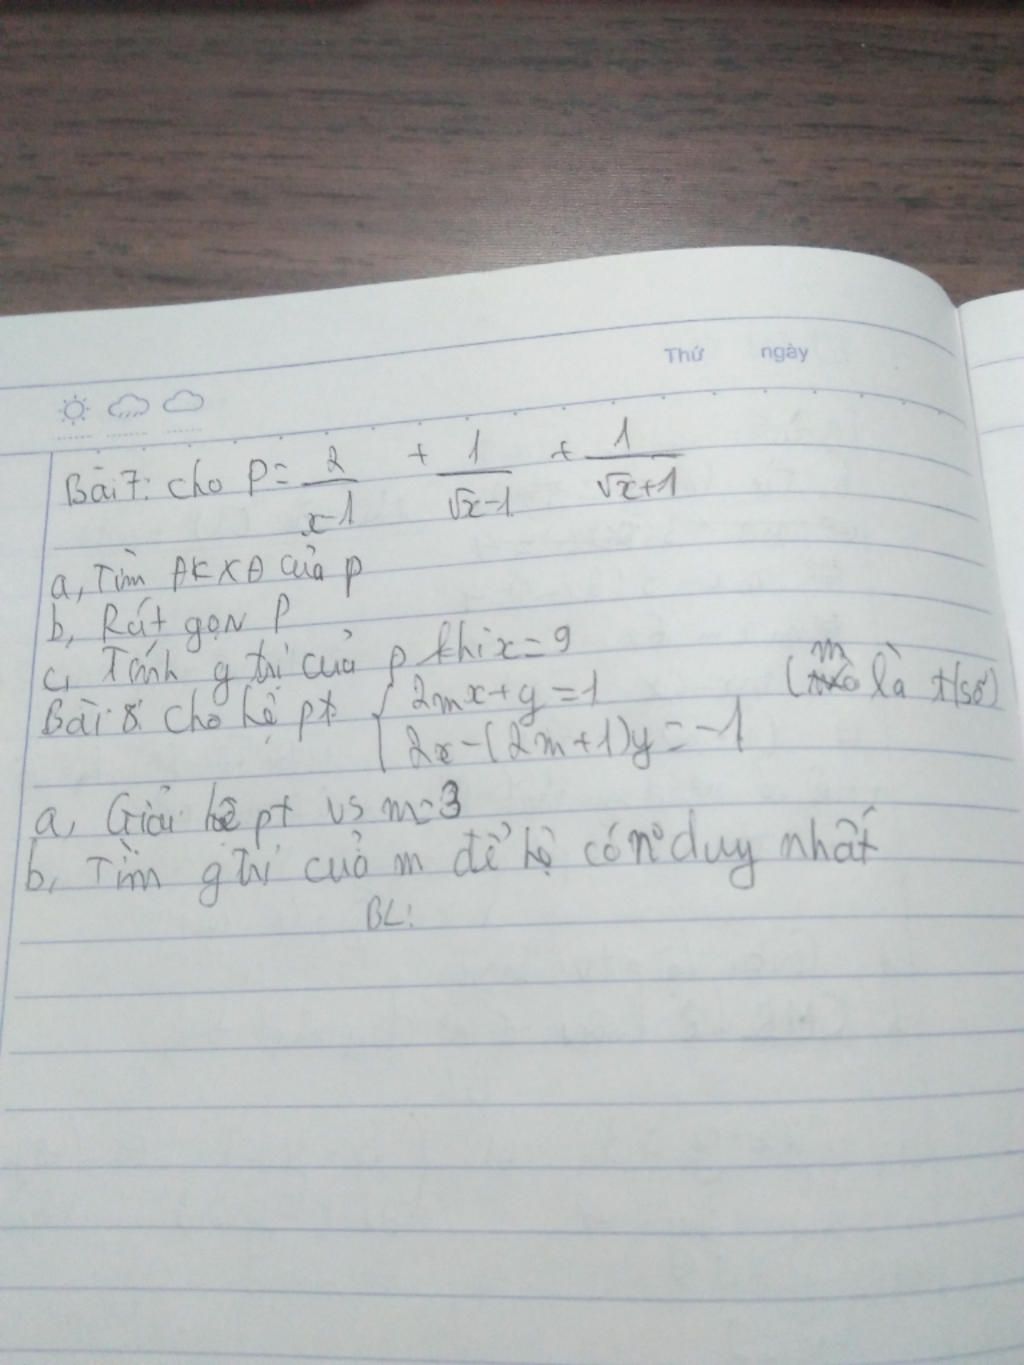 Thứ ngày
Bài 7: cho P = 2/(x-1) + 1/(√x-1) + 1/(√x+1)
a, Tìm ĐKXĐ của p
b, Rát gọn P
c, Tính g trị của p khi x = 9
Bài 8: cho hệ pt { 2mx + y = 1 (m là t/số)
2x - (2m + 1)y = -1
a, Giải hệ pt vs m = 3
b, Tìm g trị của m để hệ có nº duy nhất
BL: